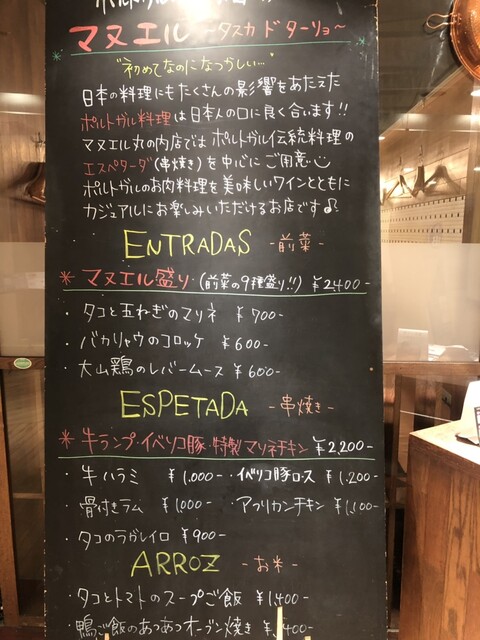 マヌエル 〜タスカ ド ターリョ〜
"初めてなのになつかしい…"
日本の料理にもたくさんの影響をあたえた
ポルトガル料理は日本人の口に良く合います!!
マヌエル丸の内店ではポルトガル伝統料理の
エスペターダ(串焼き)を中心にご用意
ポルトガルのお肉料理を美味しいワインとともに
カジュアルにお楽しみいただけるお店です♪
ENTRADAS -前菜-
* マヌエル盛り (前菜の9種盛り!!) ¥2400-
・タコと玉ねぎのマリネ ¥700-
・バカリャウのコロッケ ¥600-
・大山鶏のレバームース ¥600-
ESPETADA -串焼き-
* 牛ランプ・イベリコ豚・特製マリネチキン ¥2,200-
・牛ハラミ ¥1,000- ・イベリコ豚ロース ¥1,200
・骨付きラム ¥1,000- ・アフリカンチキン ¥1,100-
・タコのラガレイロ ¥900-
ARROZ -お米-
・タコとトマトのスープご飯 ¥1,400
・鴨ご飯のあつあつオーブン焼き